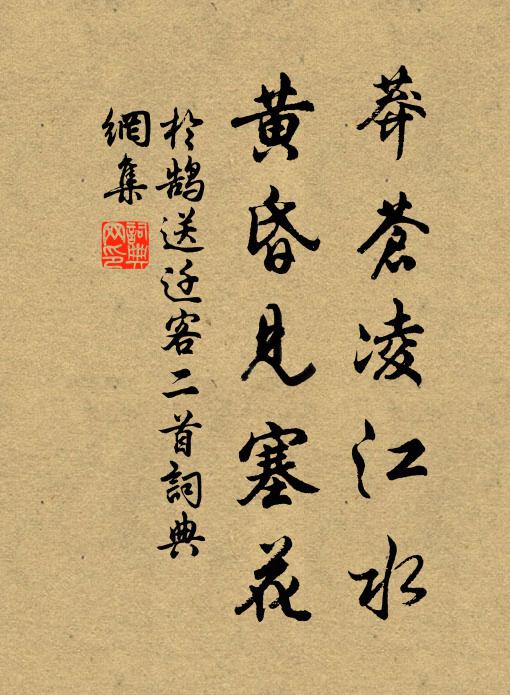 莽蒼凌江水
黄昏見塞花
於鵠送迁客二首詞典
網集
詞典
网印